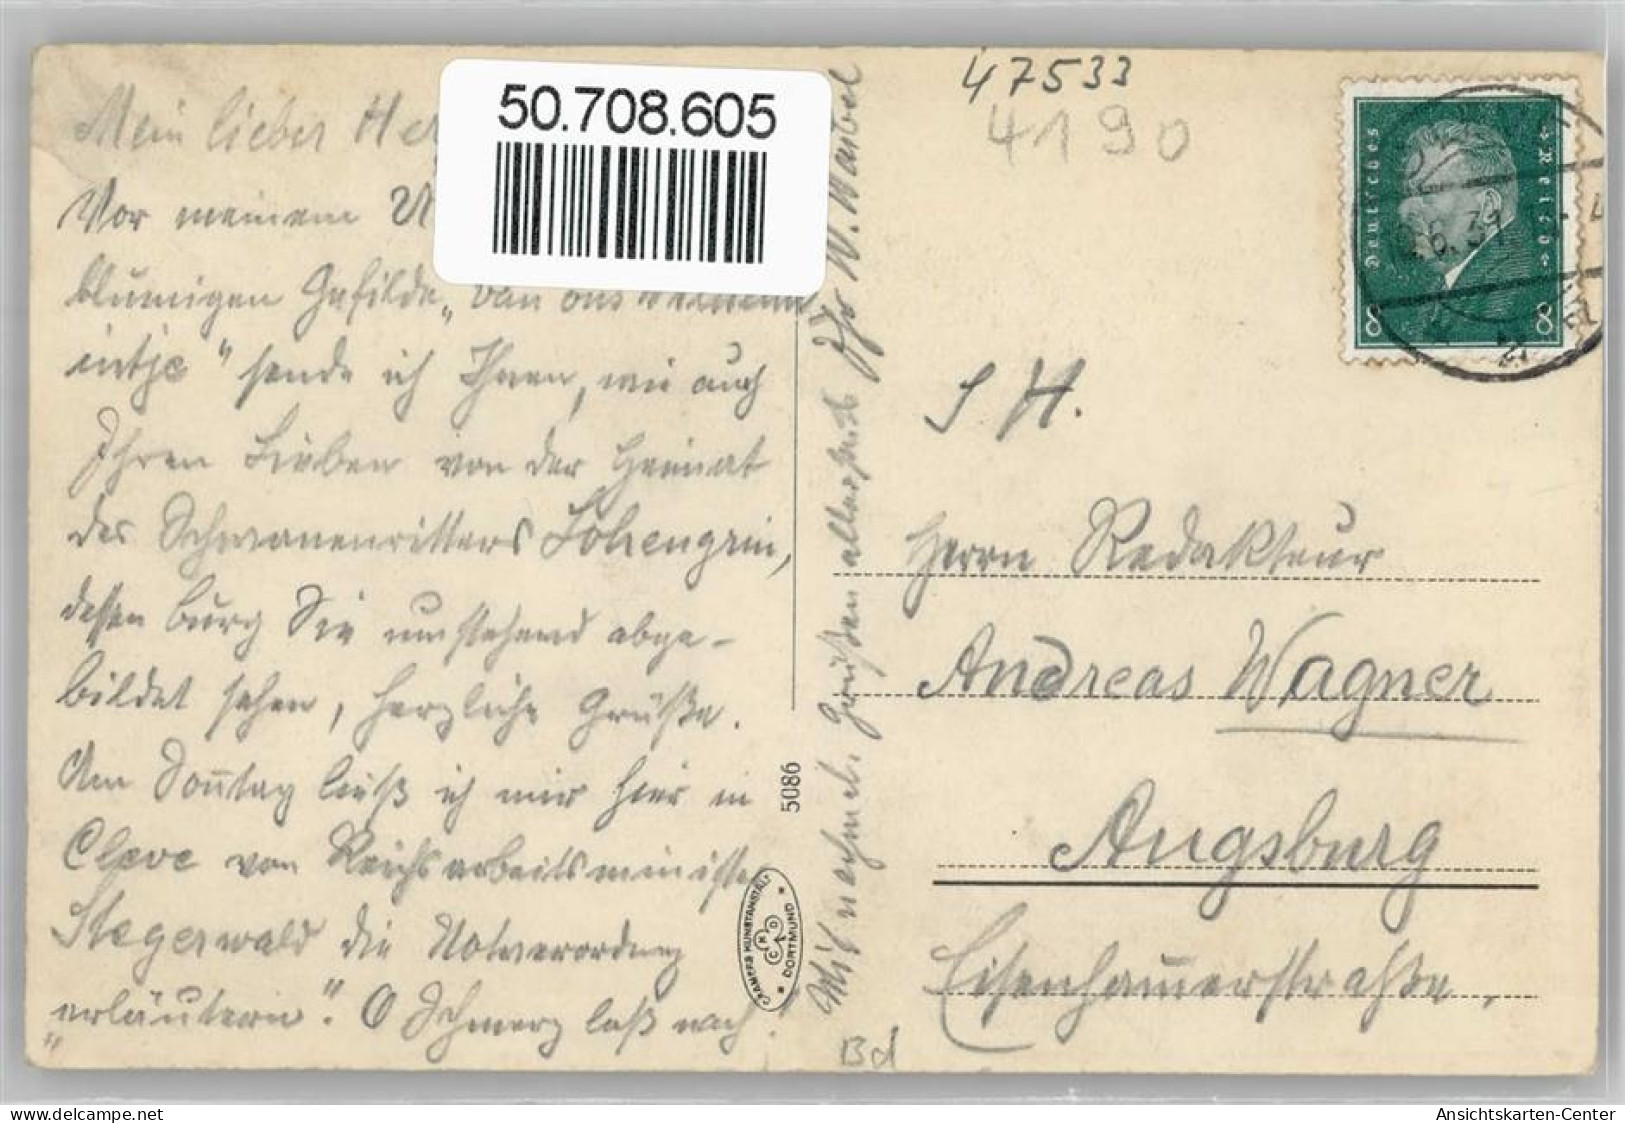 50.708.605
47533
4190
Mein lieber He
Vor meinem
blumigen Gefilde "van ons
intje" sende ich Ihnen, wie auch
Ihren Lieben von der Heimat
des Schwanenritters Lohengrin,
dessen Burg Sie umstehend abge-
bildet sehen, herzliche Grüße.
Am Sonntag ließ ich mir hier in
Cleve von Reichsarbeitsminister
Stegerwald die Notverordnung
"erläutern". O Schmerz laß nach!
Mit nochmal. Grüßen allerseits Ihr W.
5086
CRAMERS KUNSTANSTALT
CKAD
DORTMUND
Deutsches Reich
8 8
6.31
S H.
Herrn Redakteur
Andreas Wagner
Augsburg
Eisenhammerstraße,
Bd
delcampe.net
Ansichtskarten-Center